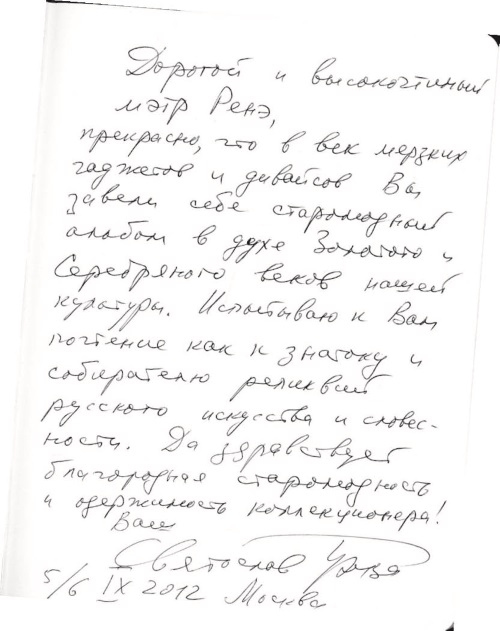 Дорогой и высокочтимый
мэтр Ренэ,
прекрасно, что в век мерзких
гаджетов и дивайсов Вы
завели себе старомодный
альбом в духе Золотого и
Серебряного веков нашей
культуры. Испытываю к Вам
почтение как к знатоку и
собирателю реликвий
русского искусства и словес-
ности. Да здравствует
благородная старомодность
и одержимость коллекционера!
Ваш
Святослав
5/6 IX 2012 Москва